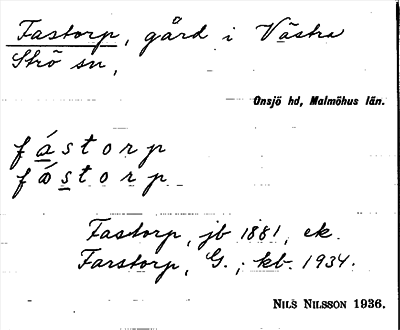 Fastorp, gård i Västra
Strö sn,
Onsjö hd, Malmöhus län.
fástorp
fástorp
Fastorp, jb 1881, ek.
Farstorp, G.; kb. 1934.
NILS NILSSON 1936.